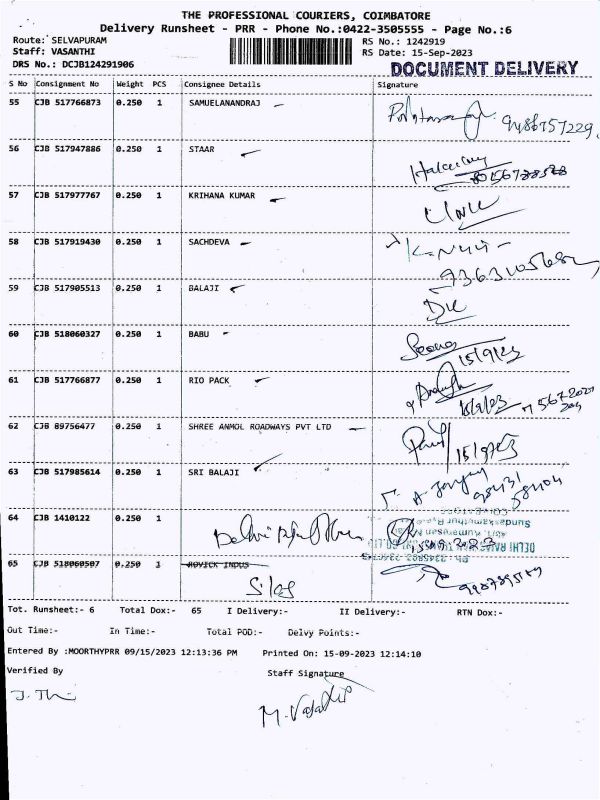 THE PROFESSIONAL COURIERS, COIMBATORE
Delivery Runsheet - PRR - Phone No.:0422-3505555 - Page No.:6
Route: SELVAPURAM RS No.: 1242919
Staff: VASANTHI RS Date: 15-Sep-2023
DRS No.: DCJB124291906 DOCUMENT DELIVERY
S No Consignment No Weight PCS Consignee Details Signature
55 CJB 517766873 0.250 1 SAMUELANANDRAJ
56 CJB 517947886 0.250 1 STAAR
57 CJB 517977767 0.250 1 KRIHANA KUMAR
58 CJB 517919430 0.250 1 SACHDEVA
59 CJB 517905513 0.250 1 BALAJI
60 CJB 518060327 0.250 1 BABU
15/9/23
61 CJB 517766877 0.250 1 RIO PACK
15/9/23
62 CJB 89756477 0.250 1 SHREE ANMOL ROADWAYS PVT LTD
15/9/23
63 CJB 517985614 0.250 1 SRI BALAJI
64 CJB 1410122 0.250 1
65 CJB 518060507 0.250 1 ROVICK INDUS
Tot. Runsheet:- 6 Total Dox:- 65 I Delivery:- II Delivery:- RTN Dox:-
Out Time:- In Time:- Total POD:- Delvy Points:-
Entered By :MOORTHYPRR 09/15/2023 12:13:36 PM Printed On: 15-09-2023 12:14:10
Verified By Staff Signature